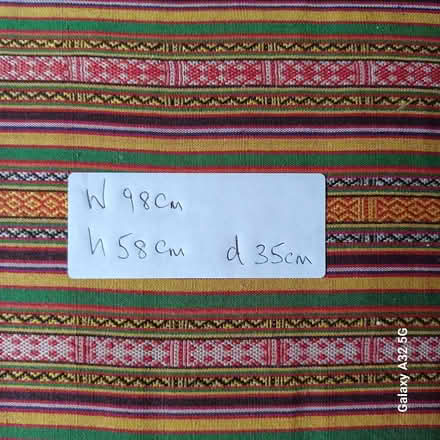 W 98cm
h 58cm d 35cm
Galaxy A32 5G